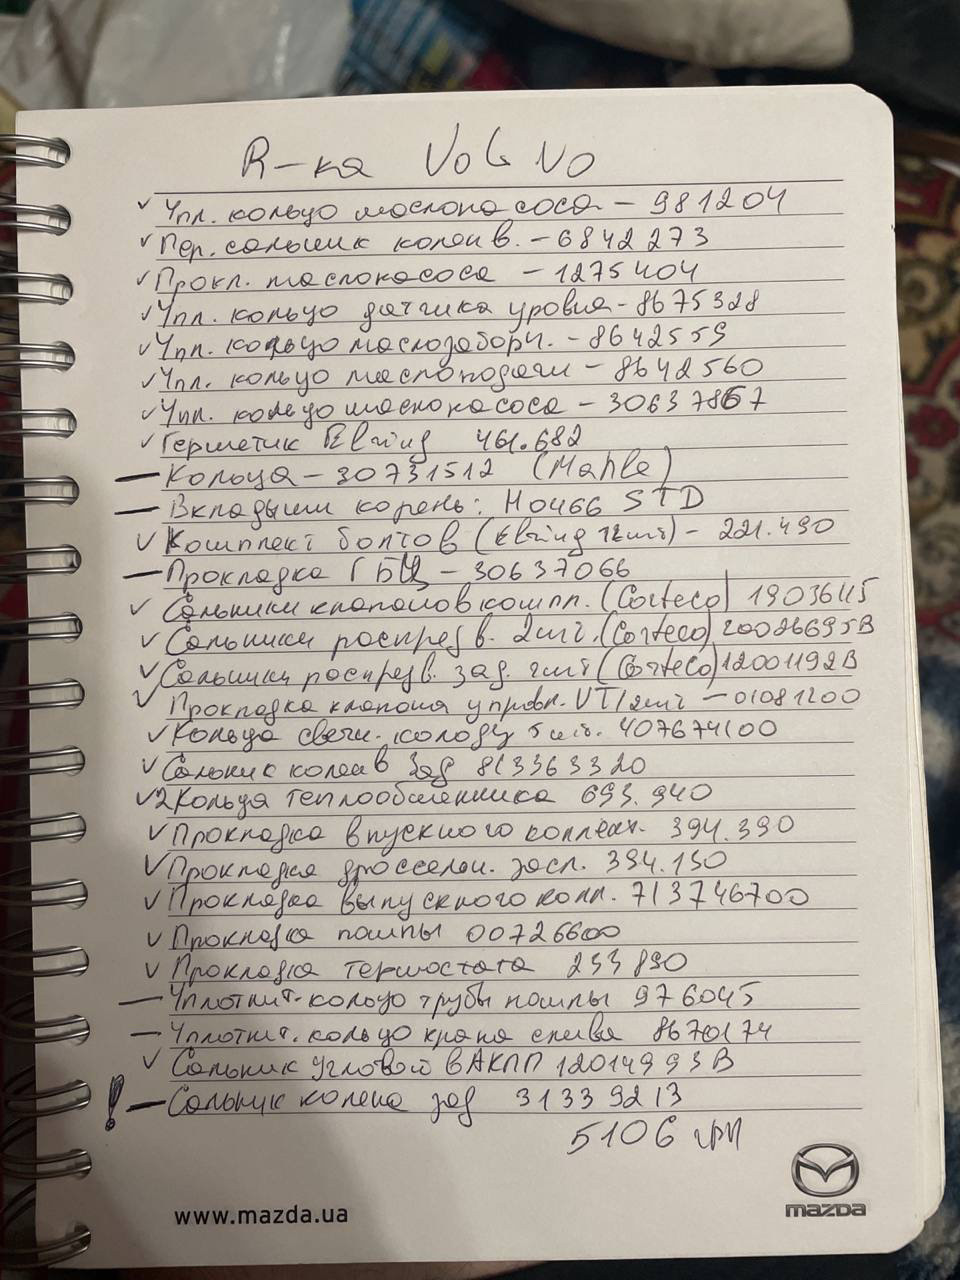 R-ка Volvo
Упл. кольцо маслонасоса - 981204
Пер. сальник колен в. - 6842273
Прокл. маслонасоса - 1275404
Упл. кольцо датчика уровня - 8675328
Упл. кольцо маслозаборн. - 8642559
Упл. кольцо маслоподачи - 8642560
Упл. кольцо маслонасоса - 30637867
Герметик Elring 461.682
Кольца - 30731512 (Mahle)
Вкладыши корень: H0466 STD
Комплект болтов (Elring 12шт) - 221.490
Прокладка ГБЦ - 30637066
Сальники клапанов компл. (Corteco) 19036145
Сальники распред в. 2шт. (Corteco) 20026695B
Сальники распред в. зад. 2шт (Corteco) 12001192B
Прокладка клапана управл. VT/2шт - 01081200
Кольца свечн. колодц 5 шт. 407674100
Сальник колен в зад 813363320
2 Кольца теплообменника 693.940
Прокладка впускного коллект. 394.390
Прокладка дроссельн. засл. 394.150
Прокладка выпускного колл. 713746700
Прокладка помпы 00726600
Прокладка термостата 253890
Уплотнит. кольцо трубы помпы 976045
Уплотнит. кольцо крана слива 8670174
Сальник угловой в АКПП 12014993B
! Сальник колена зад 31339213
5106 грн
www.mazda.ua
mazda